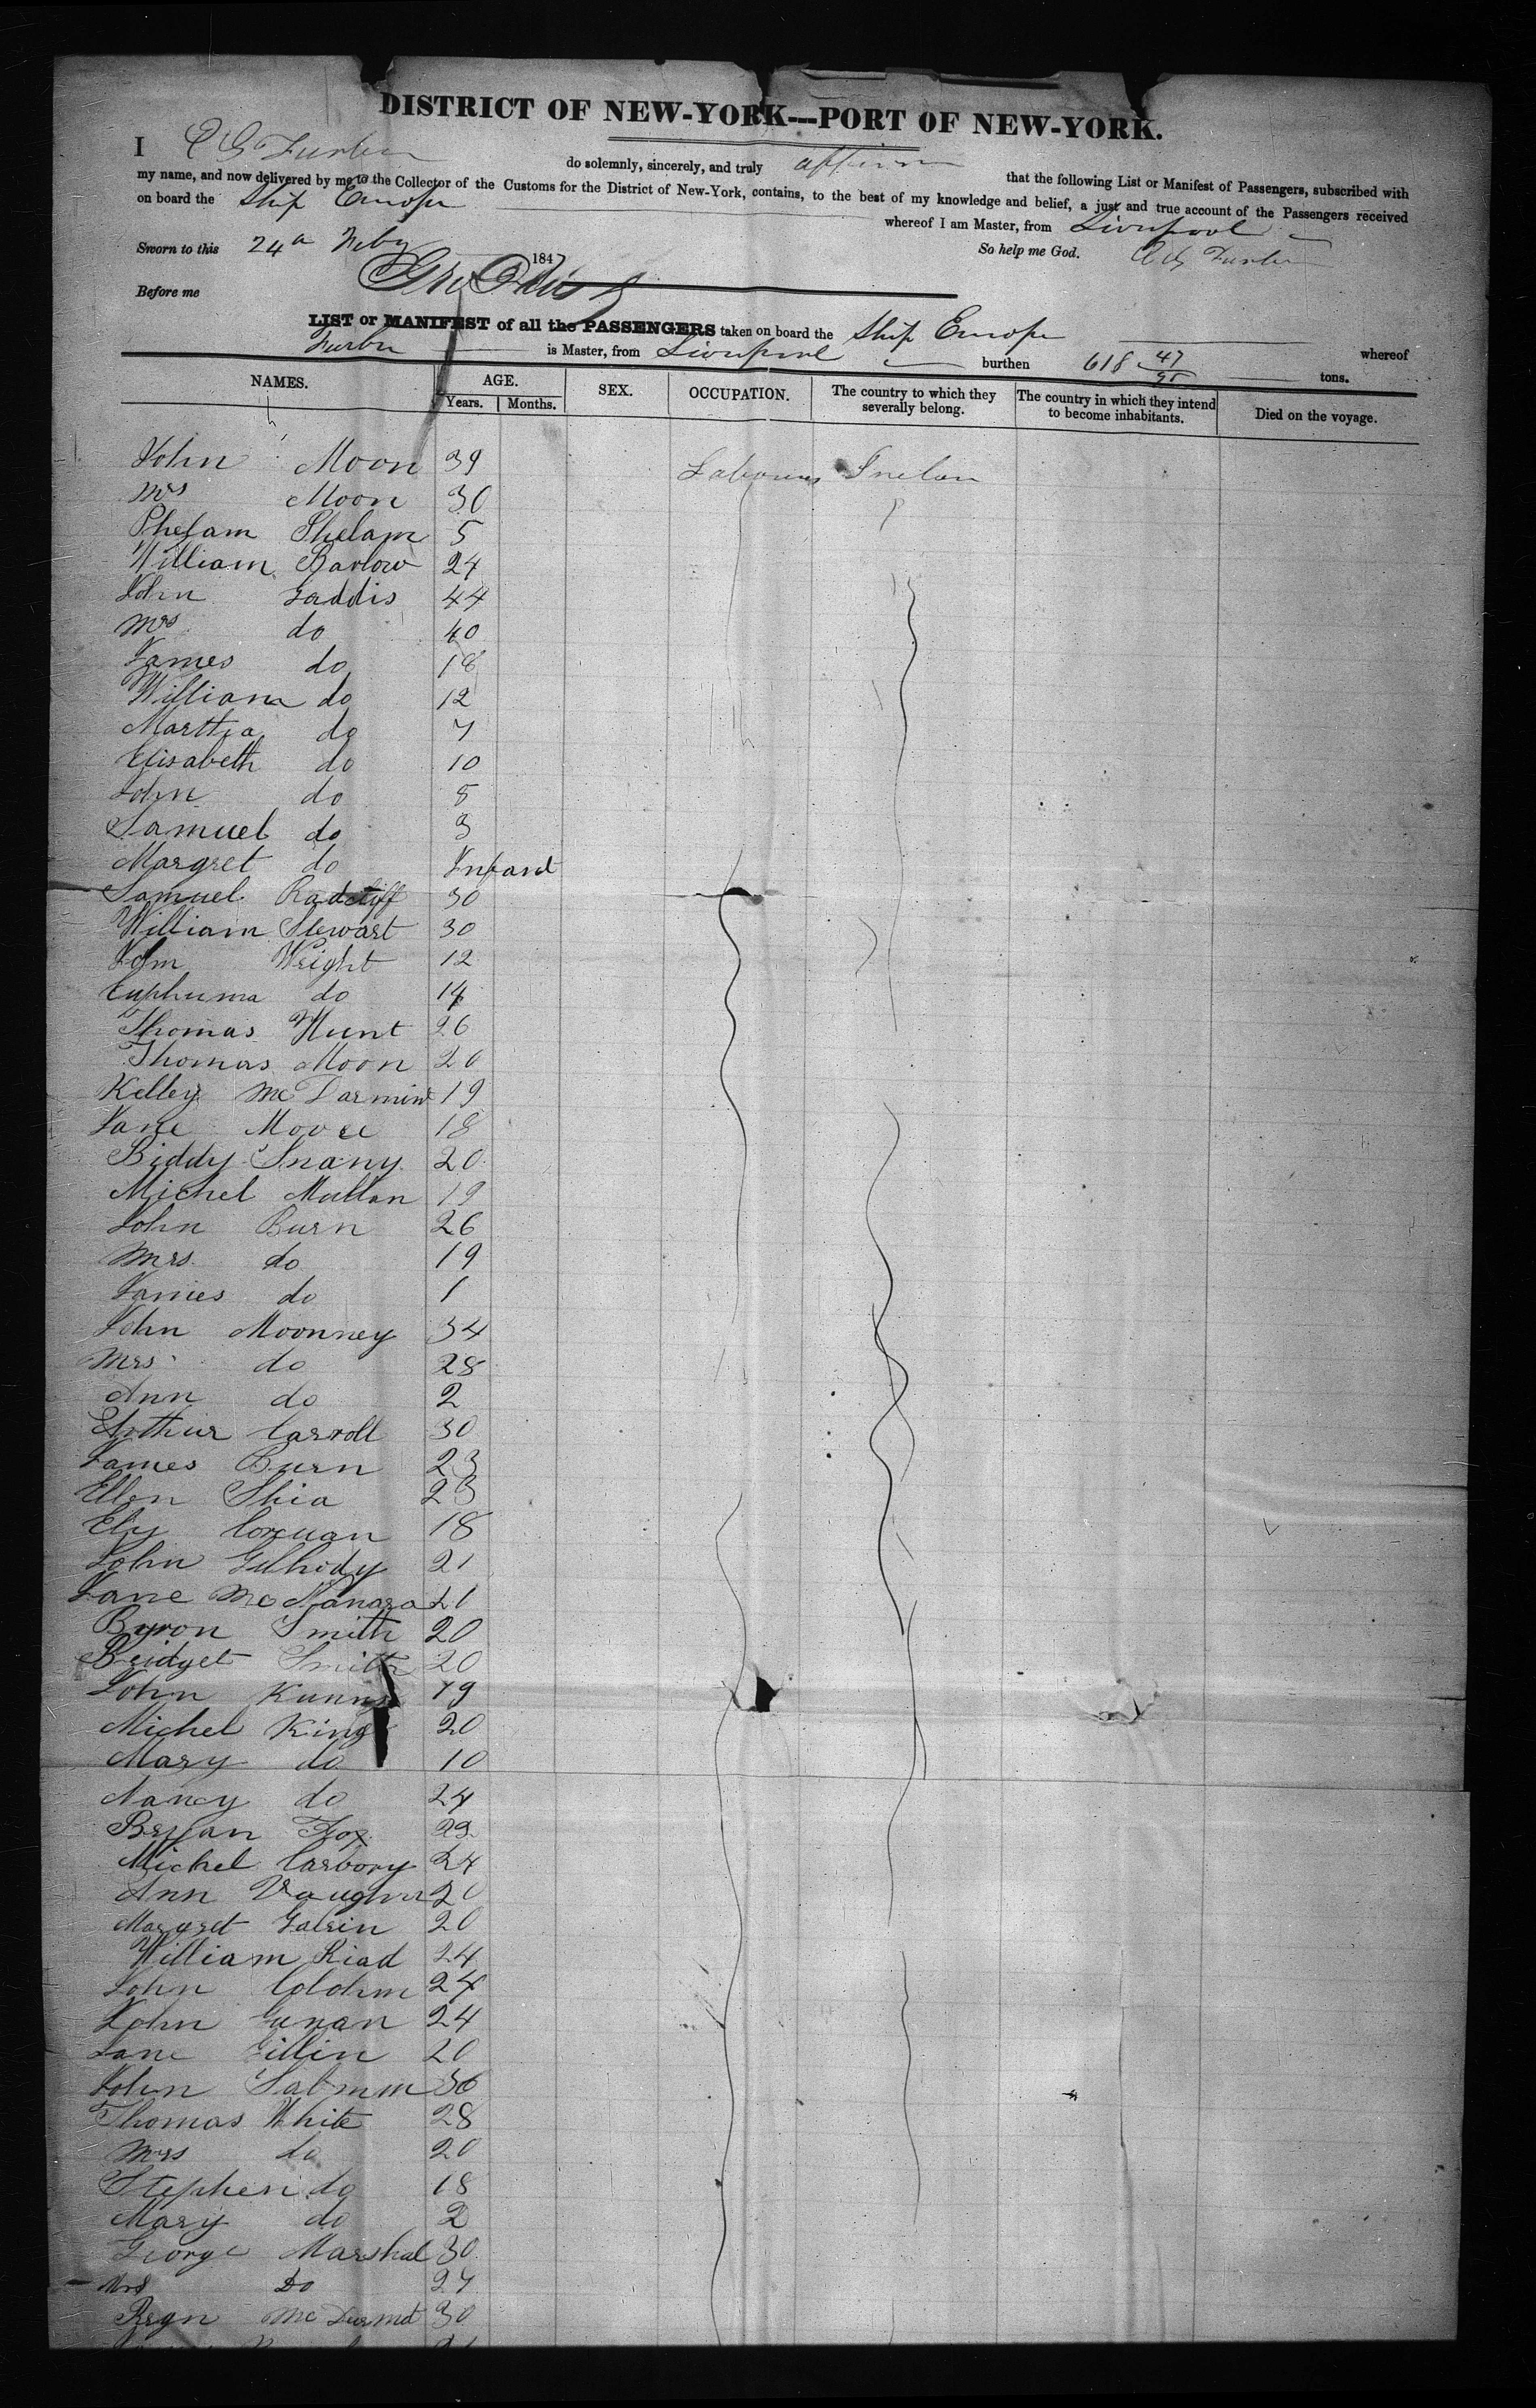 DISTRICT OF NEW-YORK---PORT OF NEW-YORK.
I E G Furber do solemnly, sincerely, and truly affirm that the following List or Manifest of Passengers, subscribed with
my name, and now delivered by me to the Collector of the Customs for the District of New-York, contains, to the best of my knowledge and belief, a just and true account of the Passengers received
on board the Ship Europe whereof I am Master, from Liverpool
Sworn to this 24th Feby 1847 So help me God. Furber
Before me
LIST or MANIFEST of all the PASSENGERS taken on board the Ship Europe whereof
Furber is Master, from Liverpool burthen 618 47/95 tons.
NAMES. AGE. SEX. OCCUPATION. The country to which they severally belong. The country in which they intend to become inhabitants. Died on the voyage.
Years. Months.
John Moon 39 Labourers
Mrs Moon 30
Phelam Phelam 5
William Barlow 24
John Gaddis 44
Mrs do 40
James do 18
William do 12
Martha do 7
Elisabeth do 10
John do 8
Samuel do 3
Margret do Infant
Samuel Radcliff 30
William Stewart 30
John Wright 12
Euphuma do 14
Thomas Hunt 26
Thomas Moon 20
Kelley Mc 19
Jane Moore 18
Biddy 20
Michel Mullan 19
John Burn 26
Mrs do 19
James do 1
John Moonney 34
Mrs do 28
Ann do 2
Arthur Carroll 30
James Burn 23
Ellen Shia 23
18
John 21
Jane 21
Byron Smith 20
Bridget Smith 20
John 19
Michel King 20
Mary do 10
Nancy do 24
Bryan Fox
Michel Carbory 24
Ann 20
Margret 20
William Riad 24
John 24
John 24
Jane Gillin 20
John
Thomas White 28
Mrs do 20
Stephen do 18
Mary do 2
George Marshal 30
Mrs Do 27
30